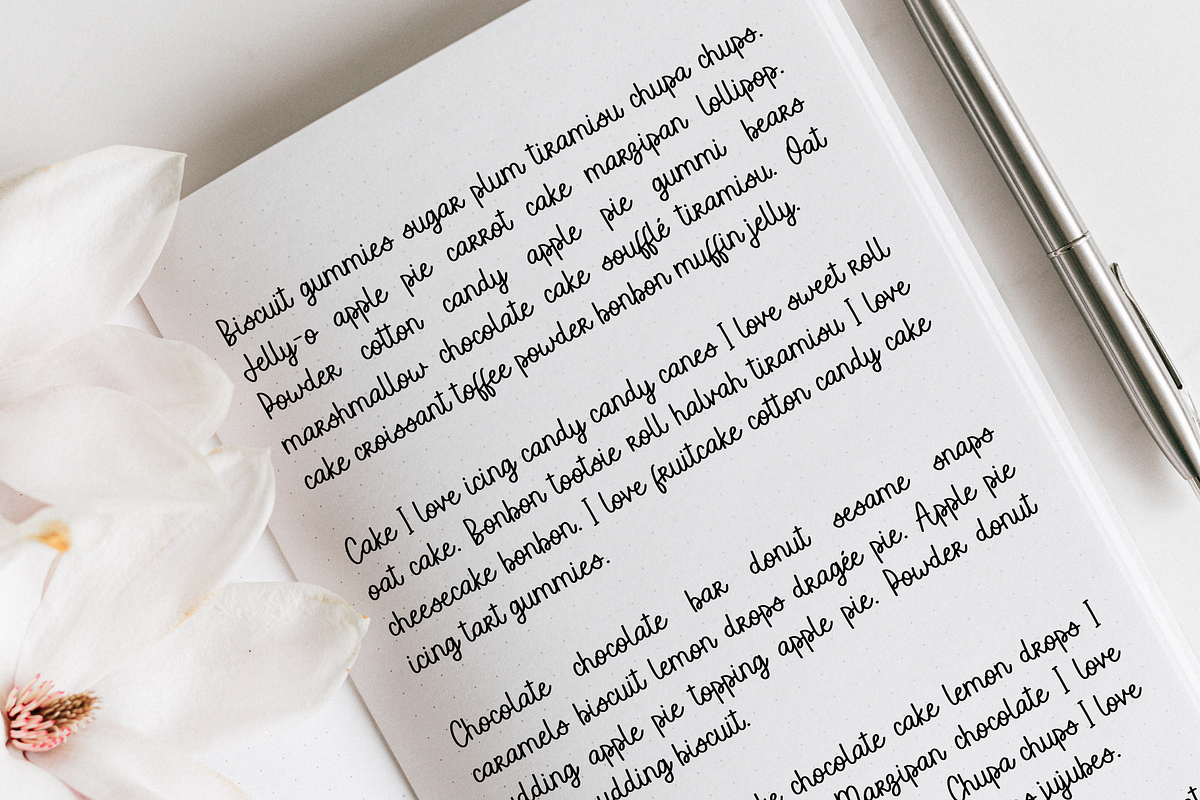 Biscuit gummies sugar plum tiramisu chupa chups.
Jelly-o apple pie carrot cake marzipan lollipop.
Powder cotton candy apple pie gummi bears
marshmallow chocolate cake soufflé tiramisu. Oat
cake croissant toffee powder bonbon muffin jelly.
Cake I love icing candy candy canes I love sweet roll
oat cake. Bonbon tootsie roll halvah tiramisu I love
cheesecake bonbon. I love fruitcake cotton candy cake
icing tart gummies.
Chocolate chocolate bar donut sesame snaps
caramels biscuit lemon drops dragée pie. Apple pie
apple pie topping apple pie. Powder donut
biscuit.
chocolate cake lemon drops I
Marzipan chocolate I love
Chupa chups I love
jujubes.